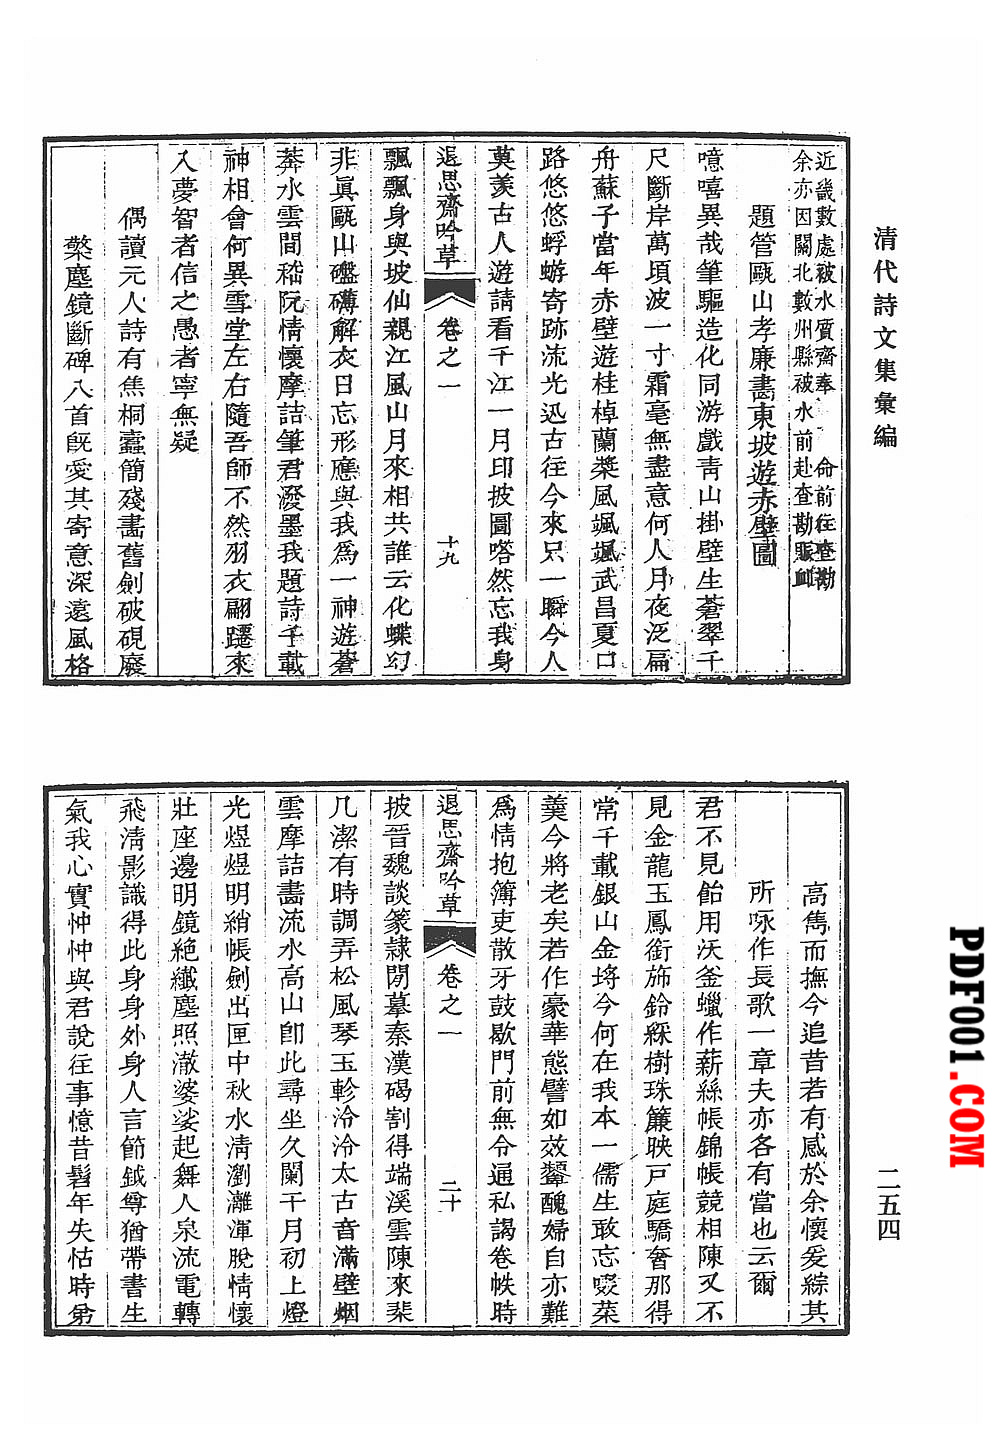 清代詩文集彙編
近畿數處被水實齋奉　命前往查勘
余亦因闗北數州縣被水前赴查勘賑䘏
題管甌山孝廉畵東坡遊赤壁圖
噫嘻異哉筆驅造化同游戲靑山掛壁生蒼翠千
尺斷岸萬頃波一寸霜毫無盡意何人月夜泛扁
舟蘇子當年赤壁遊桂棹蘭槳風颯颯武昌夏口
路悠悠蜉蝣寄跡流光迅古往今來只一瞬今人
莫羡古人遊請看千江一月印披圖嗒然忘我身
退思齋吟草　卷之一　十九
飄飄身與坡仙親江風山月來相共誰云化蝶幻
非眞甌山礴礴解衣日忘形應與我為一神遊蒼
莽水雲間嵇阮情懷摩詰筆君潑墨我題詩千載
神相會何異雪堂左右隨吾師不然羽衣翩躚來
入夢智者信之愚者寧無疑
偶讀元人詩有焦桐蠧簡殘畵舊劍破硯廢
檠塵鏡斷碑八首旣愛其寄意深遠風格
高雋而撫今追昔若有感於余懷爰綜其
所咏作長歌一章夫亦各有當也云爾
君不見飴用沃釜蠟作薪絲帳錦帳競相陳又不
見金龍玉鳳銜斾鈴綵樹珠簾映戸庭驕奢那得
常千載銀山金埓今何在我本一儒生敢忘啜菜
羹今將老矣若作豪華態譬如效顰醜婦自亦難
爲情抱簿吏散牙鼓歇門前無令通私謁卷帙時
退思齋吟草　卷之一　二十
披晉魏談篆隷閉摹秦漢碣割得端溪雲陳來棐
几潔有時調弄松風琴玉軫泠泠太古音滿壁烟
雲摩詰畵流水高山卽此尋坐久闌干月初上燈
光煜煜明綃帳劍出匣中秋水淸瀏灕渾脫情懷
壯座邊明鏡絶纖塵照澈婆娑起舞人泉流電轉
飛淸影識得此身身外身人言節鉞尊猶帶書生
氣我心實忡忡與君說往事憶昔髫年失怙時弟
二五四
PDF001.COM